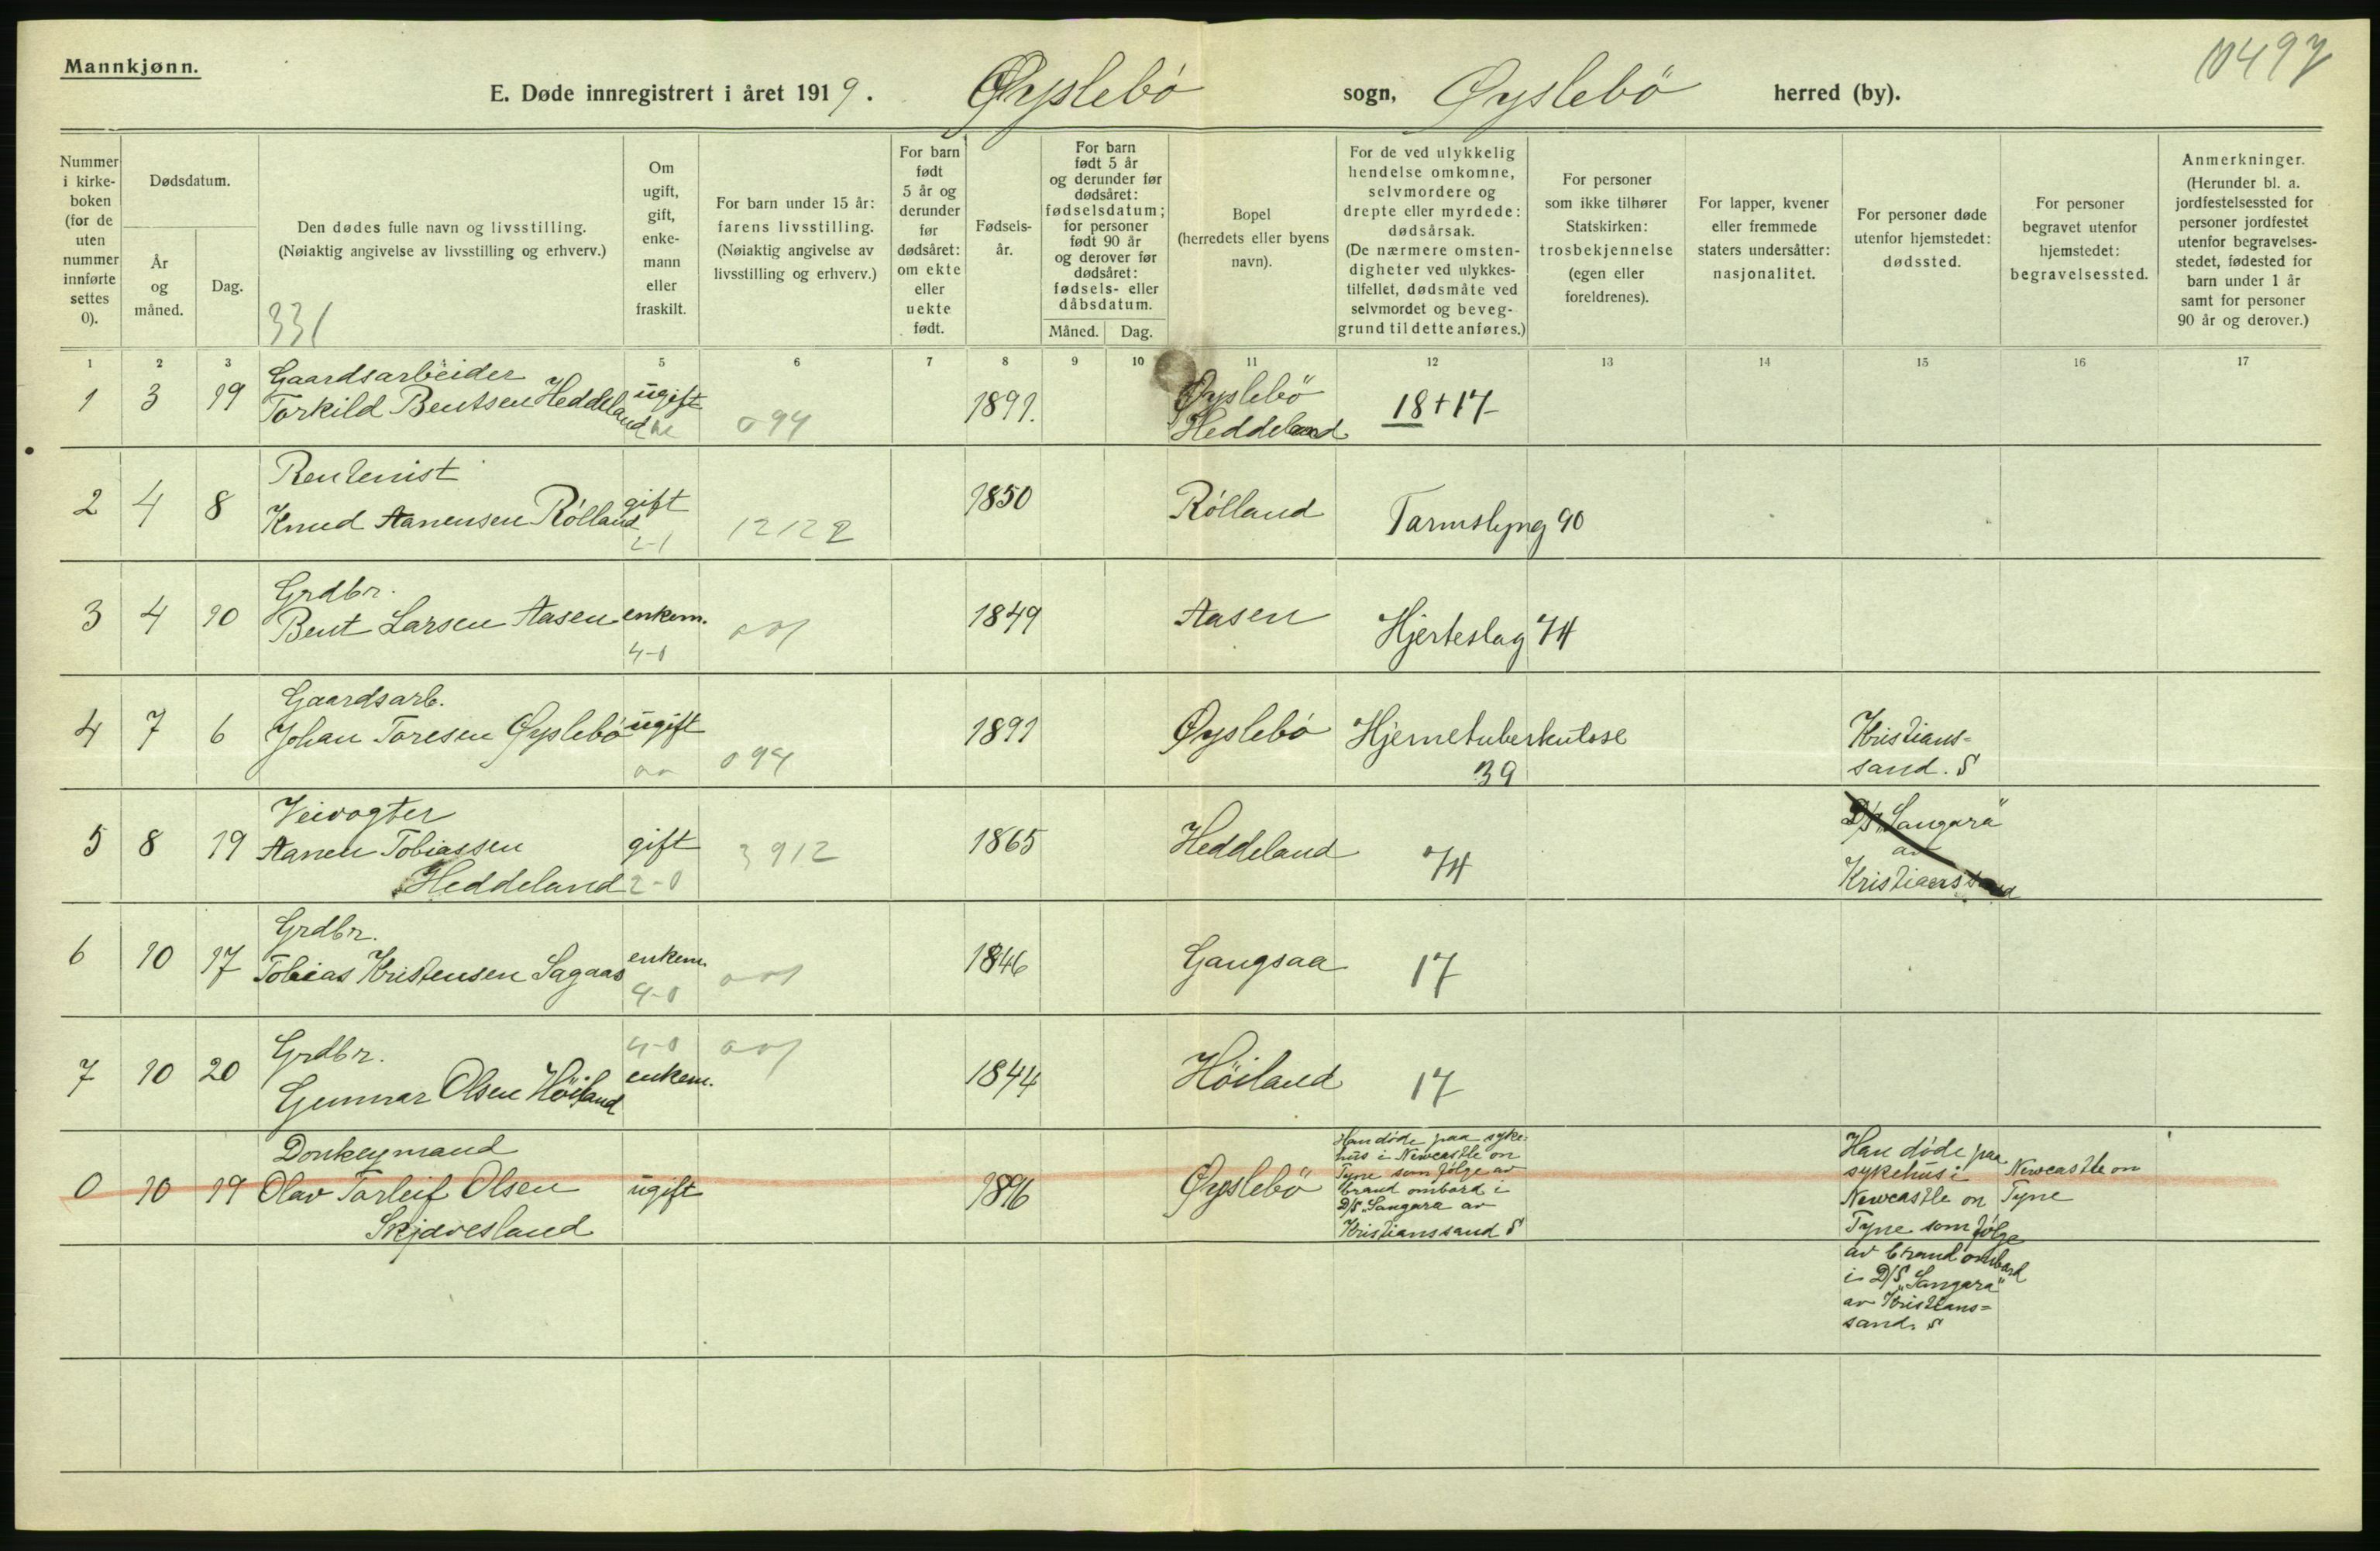 Mannkjønn.
10497
E. Døde innregistrert i året 1919. Øyslebö sogn, Øyslebö herred (by).
Nummer i kirkeboken (for de uten nummer innførte settes 0).
Dødsdatum.
År og måned.
Dag.
Den dødes fulle navn og livsstilling.
(Nøiaktig angivelse av livsstilling og erhverv.)
331
Om ugift, gift, enkemann eller fraskilt.
For barn under 15 år: farens livsstilling.
(Nøiaktig angivelse av livsstilling og erhverv.)
For barn født 5 år og derunder før dødsåret: om ekte eller uekte født.
Fødselsår.
For barn født 5 år og derunder før dødsåret: fødselsdatum; for personer født 90 år og derover før dødsåret: fødsels- eller dåbsdatum.
Måned. Dag.
Bopel (herredets eller byens navn).
For de ved ulykkelig hendelse omkomne, selvmordere og drepte eller myrdede: dødsårsak.
(De nærmere omstendigheter ved ulykkestilfellet, dødsmåte ved selvmordet og beveggrund til dette anføres.)
For personer som ikke tilhører Statskirken: trosbekjennelse (egen eller foreldrenes).
For lapper, kvener eller fremmede staters undersåtter: nasjonalitet.
For personer døde utenfor hjemstedet: dødssted.
For personer begravet utenfor hjemstedet: begravelsessted.
Anmerkninger.
(Herunder bl. a. jordfestelsessted for personer jordfestet utenfor begravelsesstedet, fødested for barn under 1 år samt for personer 90 år og derover.)
1 2 3 5 6 7 8 9 10 11 12 13 14 15 16 17
1 3 19 Gaardsarbeider
Torkild Bentsen Heddeland ugift 094 1891. Øyslebö
Heddeland 18+17
2 4 8 Rentenist
Knud Aanensen Rölland gift 2-1 12122 1850 Rölland Tarmslyng 90
3 4 10 Grdbr.
Bent Larsen Aasen enkem. 4-0 001 1849 Aasen Hjerteslag 74
4 7 6 Gaardsarb.
Johan Toresen Øyslebö ugift 094 1891 Øyslebö Hjernetuberkulose
39
Kristians=
sand. S
5 8 19 Veivogter
Aanen Tobiassen
Heddeland gift 2-0 3912 1865 Heddeland 74
D/S „Sangara"
av
Kristianssand
6 10 17 Grdbr.
Tobias Kristensen Sagaas enkem. 4-0 001 1846 Gangsaa 17
7 10 20 Grdbr.
Gunnar Olsen Höiland 4-0 enkem. 001 1844 Höiland 17
0 10 19 Donkeymand
Olav Tarleif Olsen
Skjævesland ugift 1896 Øyslebö
Han döde paa syke-
hus i Newcastle on
Tyne som fölge av
brand ombord i
D/S „Sangara av
Kristianssand S
Han döde paa
sykehus i
Newcastle on
Tyne som fölge
av brand ombord
i D/S „Sangara"
av Kristians=
sand. S
Newcastle on
Tyne